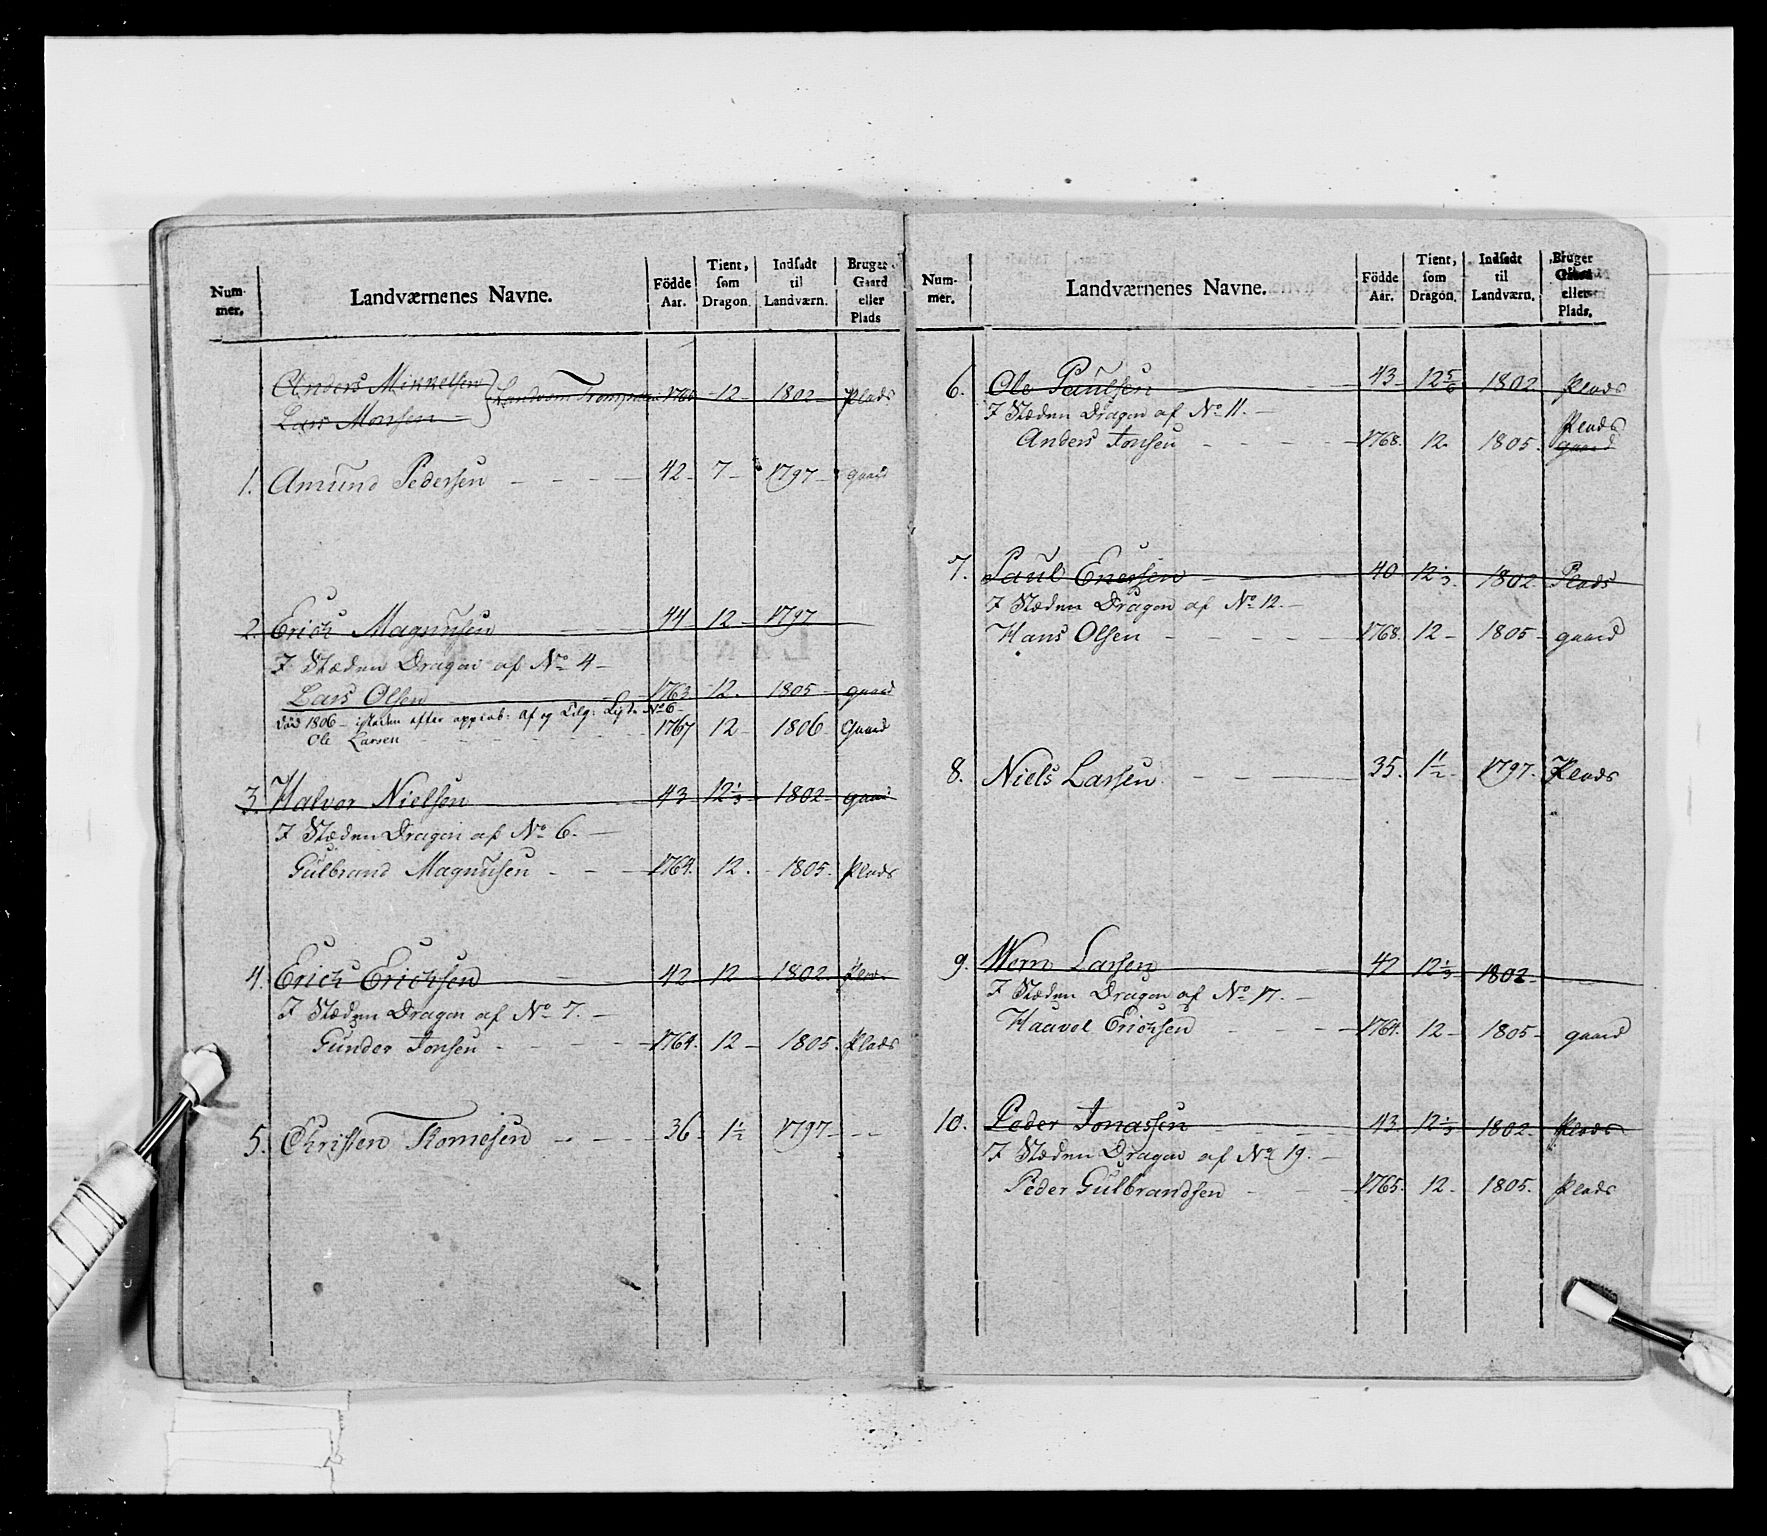 Num-
mer.
Landværnenes Navne.
Födde
Aar.
Tient,
som
Dragon.
Indsadt
til
Landværn.
Bruger
Gaard
eller
Plads
Anders Mikkelsen
Lars Monsen 1760 12 1802 Plads
1. Amund Pedersen 42 7 1797 gaard
2. Erich Magnusen 44 12 1797
I Stæden Dragon af No 4
Lars Olsen 1763 12 1805 gaard
Död 1806 istæden efter af Lista No 6
Ole Larsen 1767 12 1806 Gaard
3. Halvor Nielsen 43 12 1/3 1802 gaard
I Stæden Dragon af No 6.
Gulbrand Magnusen 1764. 12. 1805. Plads
4. Erich Erichsen 42 12 1802 Plads
I Stæden Dragon af No 7.
Gunder Jonsen 1764. 12 1805. Plads
5. Christen Thomesen 36 1 1/2 1797
Num-
mer.
Landværnenes Navne.
Födde
Aar.
Tient,
som
Dragon.
Indsadt
til
Landværn.
Bruger
Gaard
eller
Plads.
6. Ole Paulsen 43 12 5/6 1802 Plads
I Stæden Dragon af No 11.
Plads
Anders Jonsen 1768. 12. 1805. gaard
7. Paul Enersen 40 12 1/3 1802 Plads
I Stæden Dragon af No 12.
Hans Olsen 1768. 12 1805 gaard
8. Niels Larsen 35. 1 1/2 1797. Plads
9. Wern Larsen 42 12 1/3 1802
I Stæden Dragon af No 17.
Haavel Erichsen 1764. 12 1805 gaard
10. Peder Jonassen 43. 12 1/3 1802. Plads
I Stæden Dragon af No 19.
Peder Gulbrandsen 1765. 12. 1805. Plads